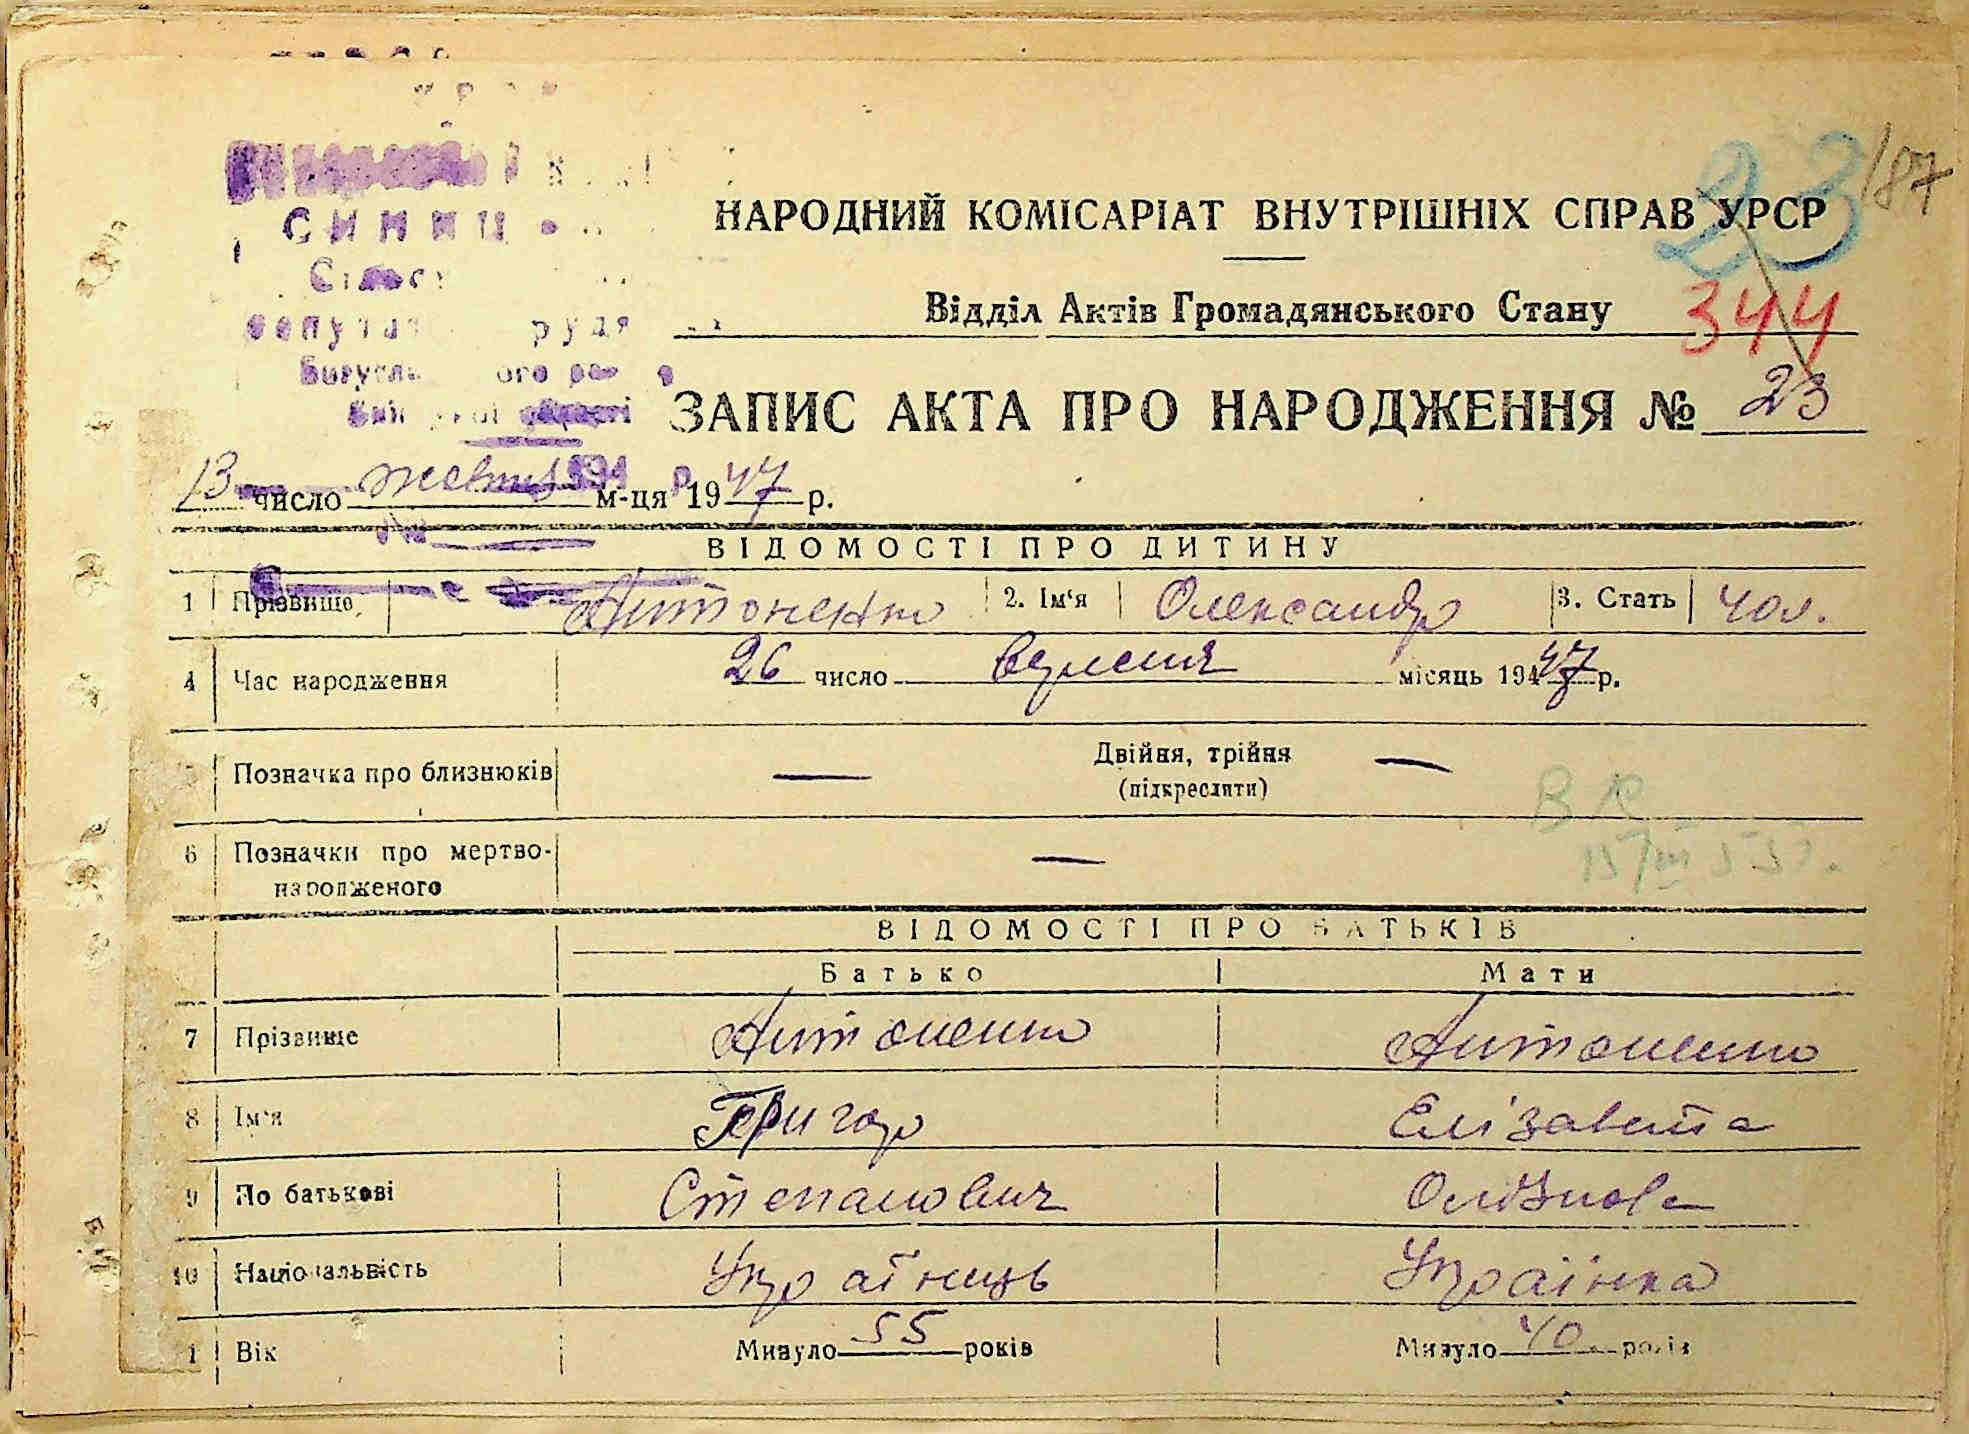 НАРОДНИЙ КОМІСАРІАТ ВНУТРІШНІХ СПРАВ УРСР
23 /87
Відділ Актів Громадянського Стану
344
ЗАПИС АКТА ПРО НАРОДЖЕННЯ № 23
13 число жовтня м-ця 1947 р.
ВІДОМОСТІ ПРО ДИТИНУ
1 Прізвище Антоненко 2. Ім'я Олександр 3. Стать чол.
4 Час народження 26 число вересня місяць 19447 р.
Позначка про близнюків — Двійня, трійня —
(підкреслити)
6 Позначки про мертво-
народженого —
ВІДОМОСТІ ПРО БАТЬКІВ
Батько Мати
7 Прізвище Антоненко Антоненко
8 Ім'я Григор Елізавета
9 По батькові Степанович
10 Національність Українець Українка
1 Вік Минуло 55 років Минуло 40 років